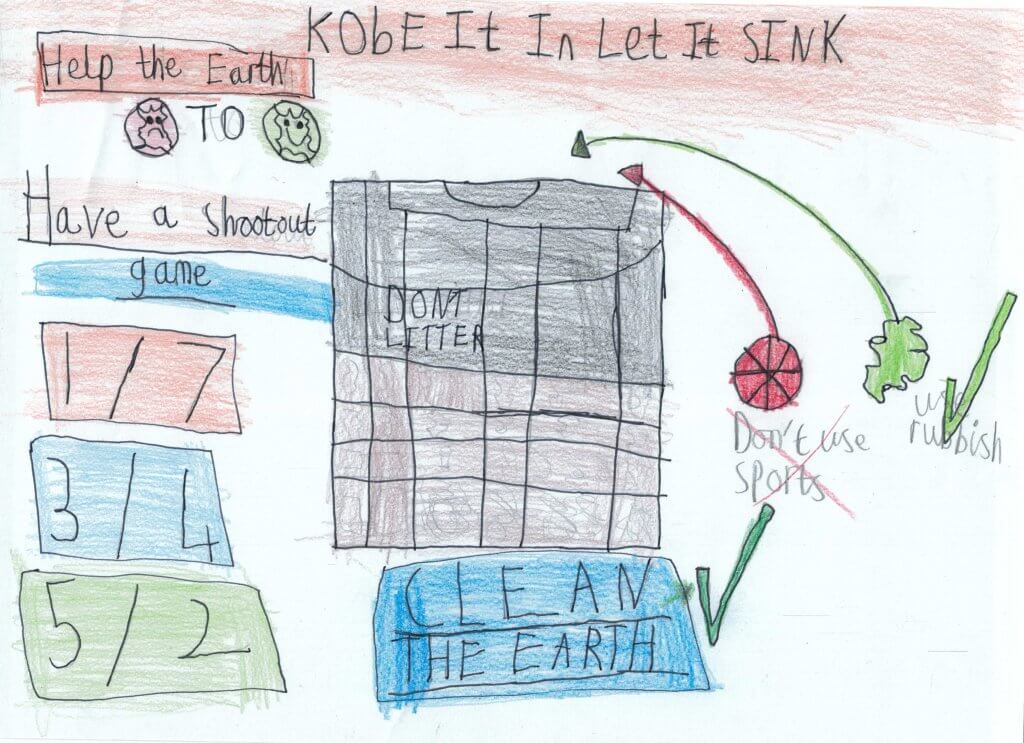 KObE It In Let It SINK
Help the Earth
TO
Have a shootout
game
DONT
LITTER
1/7
3/4
5/2
Don't use
sports
use
rubbish
CLEAN
THE EARTH